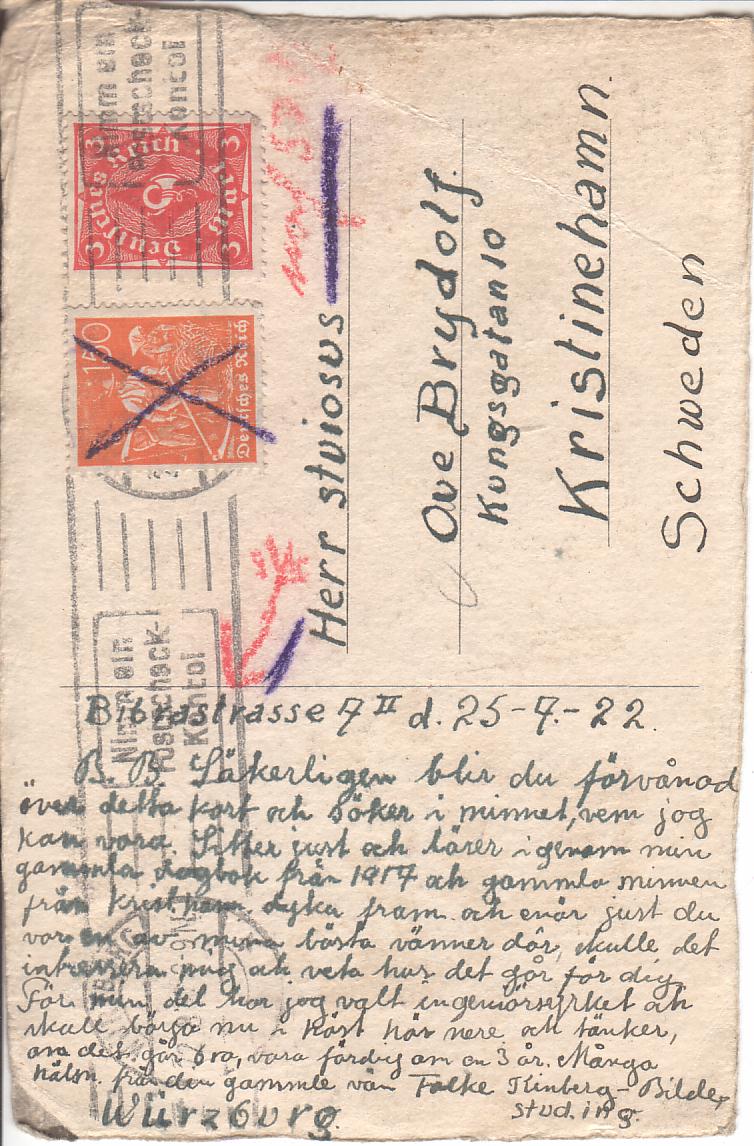 Nimm ein
Postscheck-
Kontol
3 Deutsches Reich 3
3 Mark 3
150
Deutsches Reich
Herr stviosus
Ove Brydolf.
Kungsgatan 10
Kristinehamn.
Schweden
Nimm ein
Postscheck-
Kontol
Bibrastrasse 7 II d. 25-7.-22.
B. B. Säkerligen blir du förvånad
över detta kort och söker i minnet, vem jag
kan vara. Sitter just och läser igenom min
gammla dagbok från 1917 och gammla minnen
från Krist:hamn dyka fram och enär just du
var en av mina bästa vänner där, skulle det
intressera mig att veta hur det går för dig.
För min del har jag valt ingeniörsyrket och
skall börja nu i höst här nere och tänker,
om det går bra, vara färdig om en 3 år. Många
hälsn. från din gammle vän Folke Kinberg-Bilde,
stud. ing.
Würzburg.